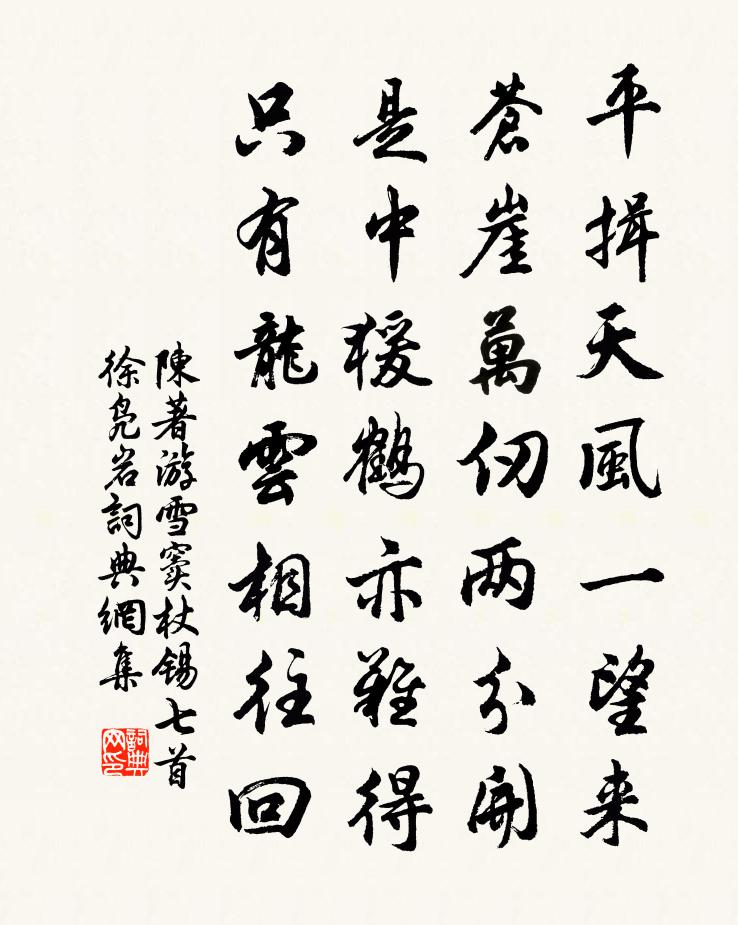 平揖天風一望来
蒼崖萬仞两分開
是中猨鶴亦難得
只有龍雲相往回
陳著游雪竇杖錫七首
徐凫岩詞典網集
詞典网印